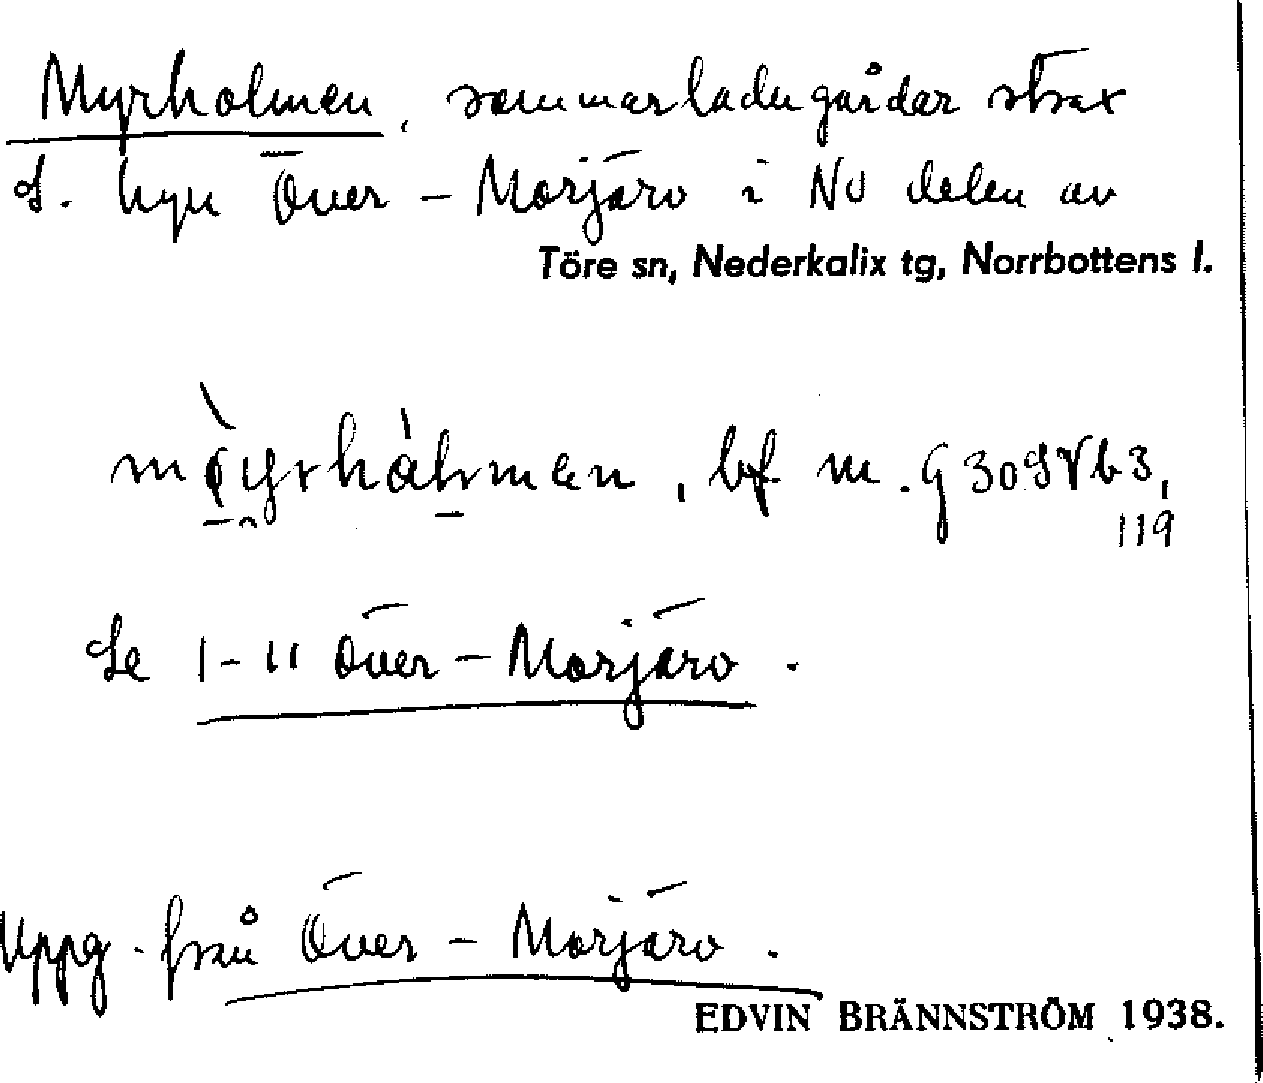 Myrholmen, sommarladugårdar strax
S. byn Över-Morjärv i NV delen av
Töre sn, Nederkalix tg, Norrbottens l.
bf m. G 30 S Vb 3,
119
Se 1-11 Över-Morjärv.
Uppg. från Över-Morjärv.
EDVIN BRÄNNSTRÖM 1938.